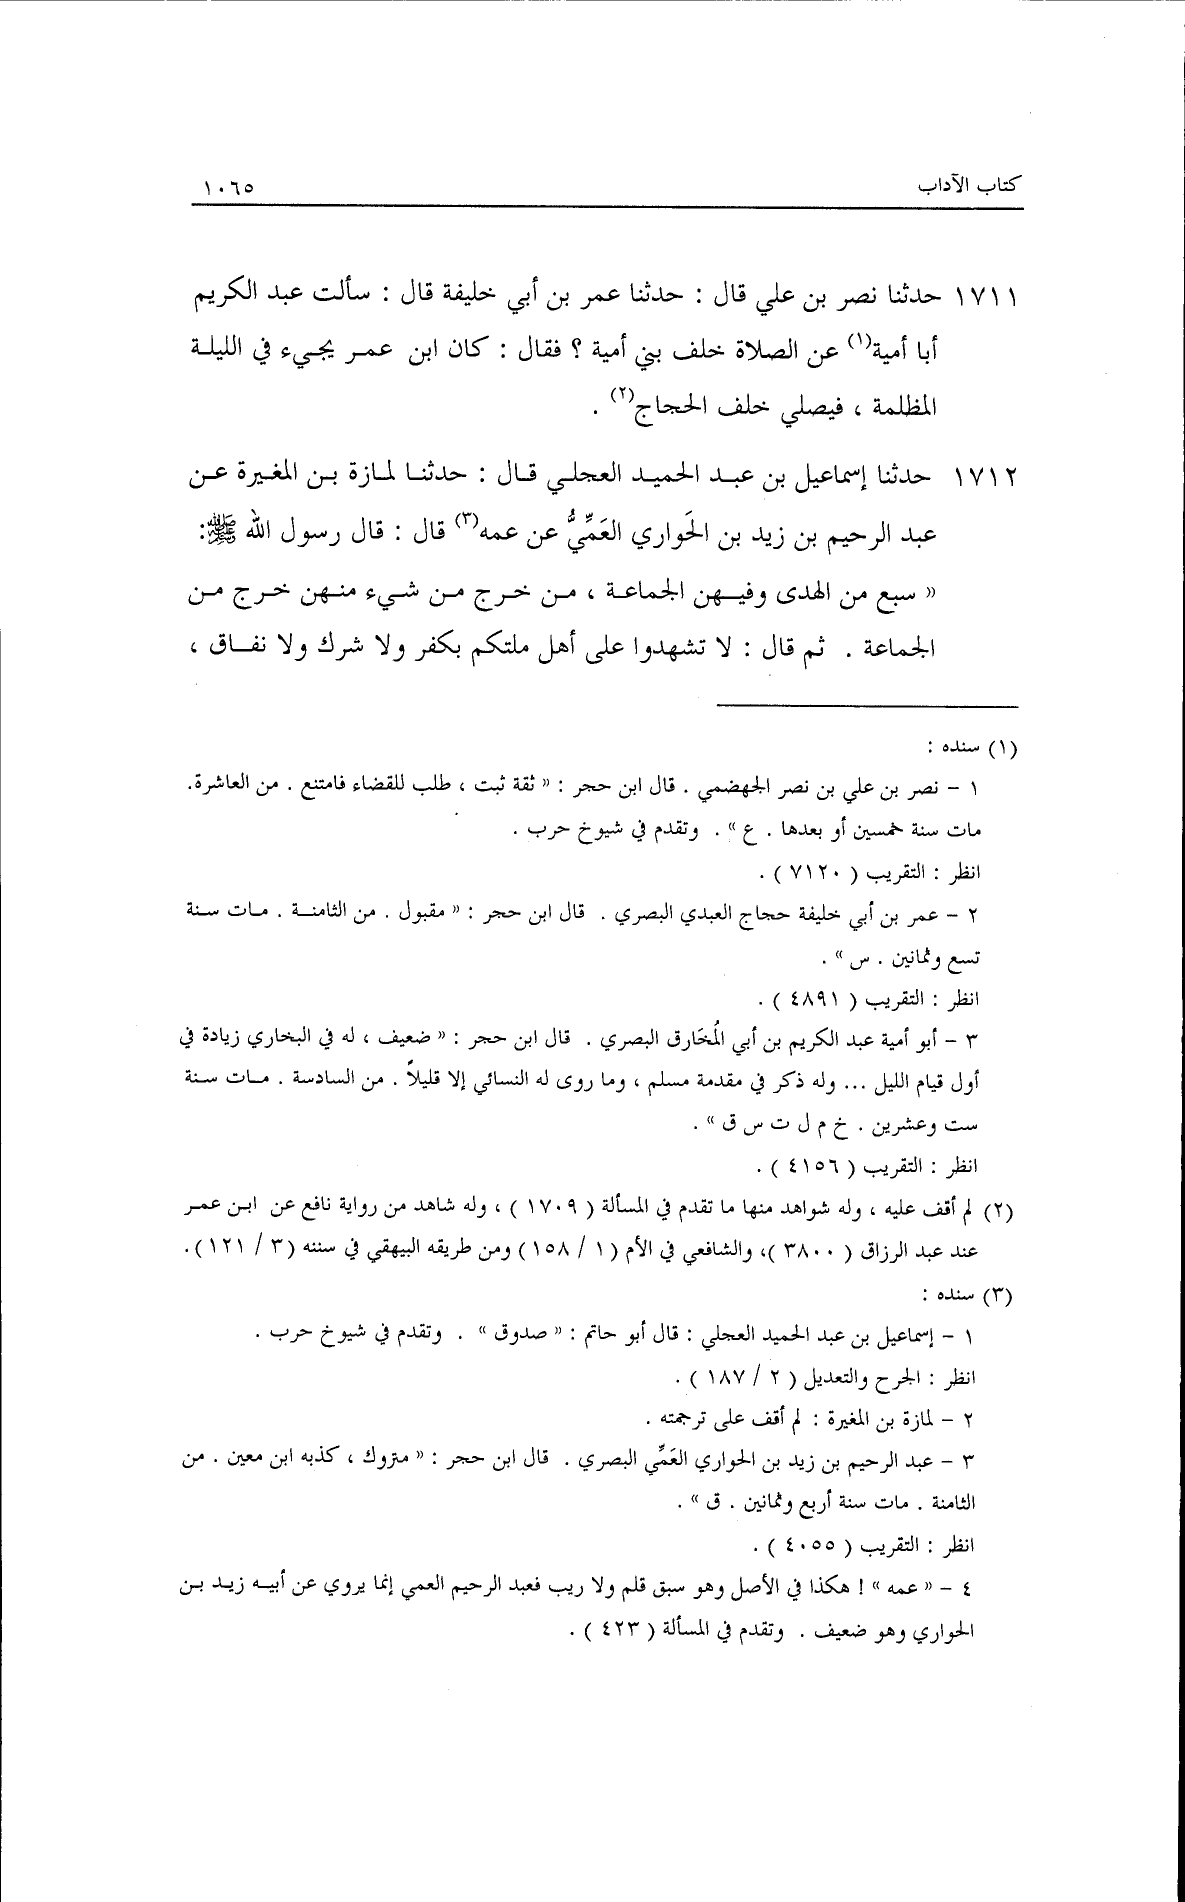 كتاب الآداب ١٠٦٥
١٧١١ حدثنا نصر بن علي قال : حدثنا عمر بن أبي خليفة قال : سألت عبد الكريم
أبا أمية(١) عن الصلاة خلف بني أمية ؟ فقال : كان ابن عمر يجيء في الليلة
المظلمة ، فيصلي خلف الحجاج(٢) .
١٧١٢ حدثنا إسماعيل بن عبد الحميد العجلي قال : حدثنا لمازة بن المغيرة عن
عبد الرحيم بن زيد بن الحَواري العَمِّيُّ عن عمه(٣) قال : قال رسول الله ﷺ:
« سبع من الهدى وفيهن الجماعة ، من خرج من شيء منهن خرج من
الجماعة . ثم قال : لا تشهدوا على أهل ملتكم بكفر ولا شرك ولا نفاق ،
(١) سنده :
١ – نصر بن علي بن نصر الجهضمي . قال ابن حجر : « ثقة ثبت ، طلب للقضاء فامتنع . من العاشرة.
مات سنة خمسين أو بعدها . ع » . وتقدم في شيوخ حرب .
انظر : التقريب ( ٧١٢٠ ) .
٢ – عمر بن أبي خليفة حجاج العبدي البصري . قال ابن حجر : « مقبول . من الثامنة . مات سنة
تسع وثمانين . س » .
انظر : التقريب ( ٤٨٩١ ) .
٣ – أبو أمية عبد الكريم بن أبي المُخَارق البصري . قال ابن حجر : « ضعيف ، له في البخاري زيادة في
أول قيام الليل ... وله ذكر في مقدمة مسلم ، وما روى له النسائي إلا قليلاً . من السادسة . مات سنة
ست وعشرين . خ م ل ت س ق » .
انظر : التقريب ( ٤١٥٦ ) .
(٢) لم أقف عليه ، وله شواهد منها ما تقدم في المسألة ( ١٧٠٩ ) ، وله شاهد من رواية نافع عن ابن عمر
عند عبد الرزاق ( ٣٨٠٠ )، والشافعي في الأم ( ١ / ١٥٨ ) ومن طريقه البيهقي في سننه ( ٣ / ١٢١ ).
(٣) سنده :
١ – إسماعيل بن عبد الحميد العجلي : قال أبو حاتم : « صدوق » . وتقدم في شيوخ حرب .
انظر : الجرح والتعديل ( ٢ / ١٨٧ ) .
٢ – لمازة بن المغيرة : لم أقف على ترجمته .
٣ – عبد الرحيم بن زيد بن الحواري العَمِّي البصري . قال ابن حجر : « متروك ، كذبه ابن معين . من
الثامنة . مات سنة أربع وثمانين . ق » .
انظر : التقريب ( ٤٠٥٥ ) .
٤ – « عمه » ! هكذا في الأصل وهو سبق قلم ولا ريب فعبد الرحيم العمي إنما يروي عن أبيه زيد بن
الحواري وهو ضعيف . وتقدم في المسألة ( ٤٢٣ ) .